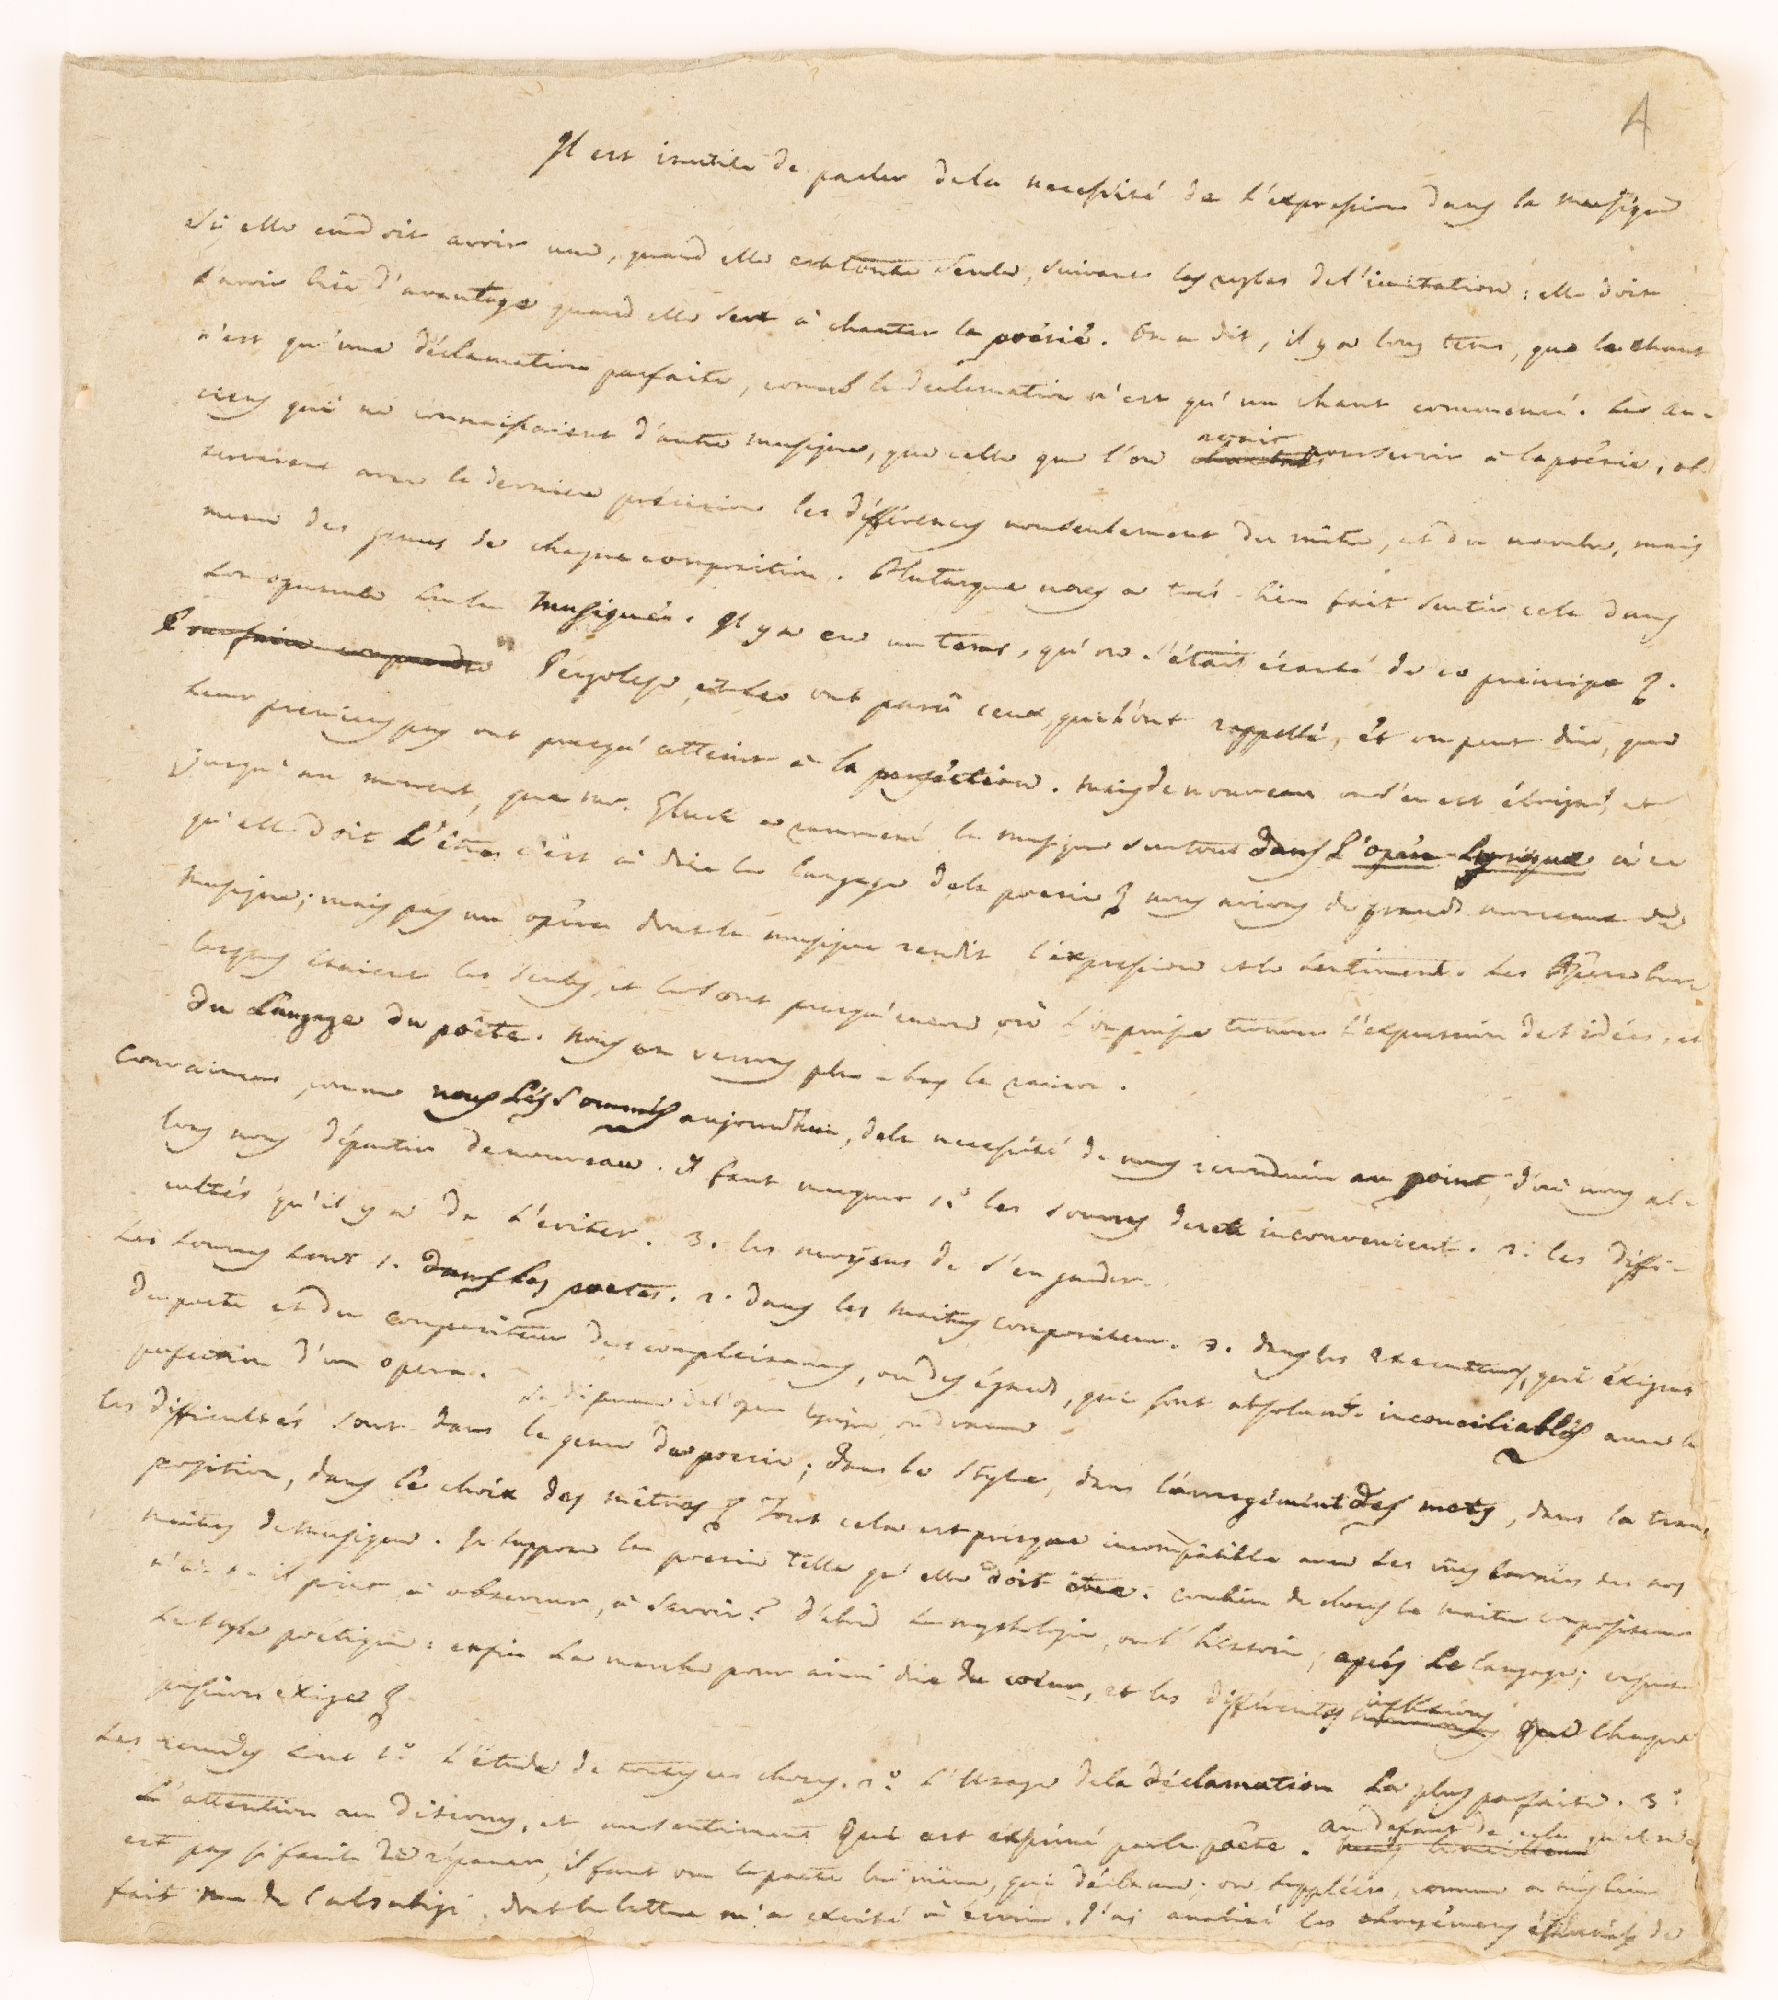 A
Il est inutile de parler de la necessité de l'expression dans la musique
si elle en doit avoir une, quand elle est toute seule, suivant les regles de l'imitation: elle doit
l'avoir bien d'avantage quand elle sert à chanter la poésie. On a dit, il y a long tems, que le chant
n'est qu'une déclamation parfaite, comme la declamation n'est qu'un chant commencé. Les an-
ciens qui ne connaissaient d'autre musique, que celle que l'on pour servir à la poésie, ob
servaient avec la derniere précision les différences nonseulement du mêtre, et du nombre, mais
meme des genres de chaque composition. Plutarque nous a tres-bien fait sentir cela dans
son opuscule sur la Musique. Il y a eu un tems, qu'on s'était écarté de ce principe.
Pergolese, et Leo ont parû ceux, qui l'ont rappellé, et on peut dire, que
leurs premiers pas ont presqu' atteint à la perféction. mais de nouveau on s'en est éloigné, et
jusqu'au moment, que mr. Gluck a ramené la musique surtout dans l'opéra Lyrique à ce
qu'elle doit l'être c'est à dire le langage de la poesie nous avions de grands morceaux de
Musique; mais pas un opéra dont la musique rendit l'expression et le sentiment. Les
étaient les seuls, et le sont presqu'encore, où l'on puisse trouver l'expression des idées, et
du langage du poête. Nous en verrons plus a bas la raison.
Convaincus comme nous les sommes aujourdhui, de la necessité de nous reconduire au point, d'où nous al-
lons nous départir de nouveau. il faut marquer 1.º les sources de cet inconvenient. 2.º les diffi-
cultés qu'il y a de l'eviter. 3. les moÿens de s'en garder.
Les sources sont 1. dans les poetes. 2. dans les maitres compositeurs. 3. dans les executeurs, qui éxigent
du poete et du compositeur des complaisances, ou des égards, qui sont absolument inconciliables avec la
perfection d'un opera.
de l'opera lyrique, ou
les difficultés sont dans le genre de poesie; dans le style, dans l'arrangement des mots, dans la trans
position, dans le choix des mêtres Tout cela est presque incompatible avec les vües bornées des nos
maitres de Musique. Je suppose la poesie telle qu'elle doit être. Combien de choses le maitre compositeur
n'a-t-il point à observer, à savoir? d'abord la mythologie, ou l'histoire, après le langage; ensuite
le style poetique: enfin la marche pour ainsi dire du coeur, et les differentes inflexions que chaque
passion exige
Les remedes sont 1º. l'étude de toutes ces choses. 2º. L'usage de la déclamation la plus parfaite. 3º.
L'attention au discours, et au sentiment qui est exprimé par le poête. au defaut de cela qu'il n'
est pas si facile de réparer, il faut ou le poete lui même, qui déclame; ou suppléer, comme a
fait mr de Calsabigi, dont la lettre m'a excité à écrire. J'ai de